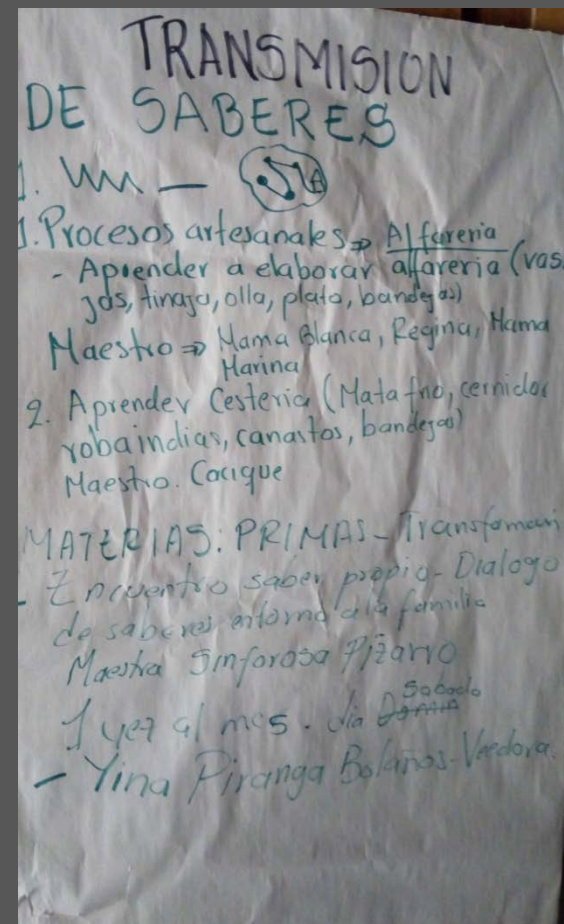 TRANSMISION
DE SABERES
1.
1. Procesos artesanales ⇒ Alfareria
- Aprender a elaborar alfareria (vas
jas, tinaja, olla, plato, bandejas)
Maestro ⇒ Mama Blanca, Regina, Mama
Marina
2. Aprender Cesteria (Matafrio, cernidor
robaindias, canastos, bandejas)
Maestro. Cacique
MATERIAS: PRIMAS - Transfomaci
- Encuentro saber propio - Dialogo
de saberes entorno a la familia
Maestra Sinforosa Pizarro
1 vez al mes. dia Sabado
- Yina Piranga Bolaños - Veedora.